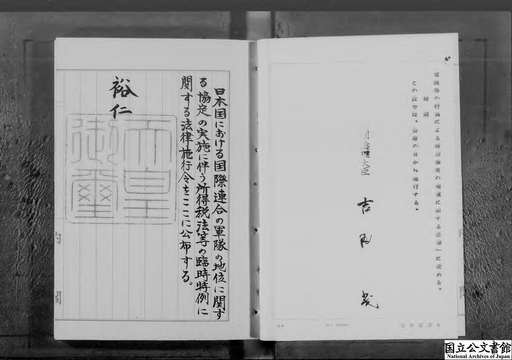 附則
この政令は、公布の日から施行する。
内閣総理大臣
吉田茂
日本国における国際連合の軍隊の地位に関す
る協定の実施に伴う所得税法等の臨時特例に
関する法律施行令をここに公布する。
裕仁
天皇
御璽
国立公文書館
National Archives of Japan